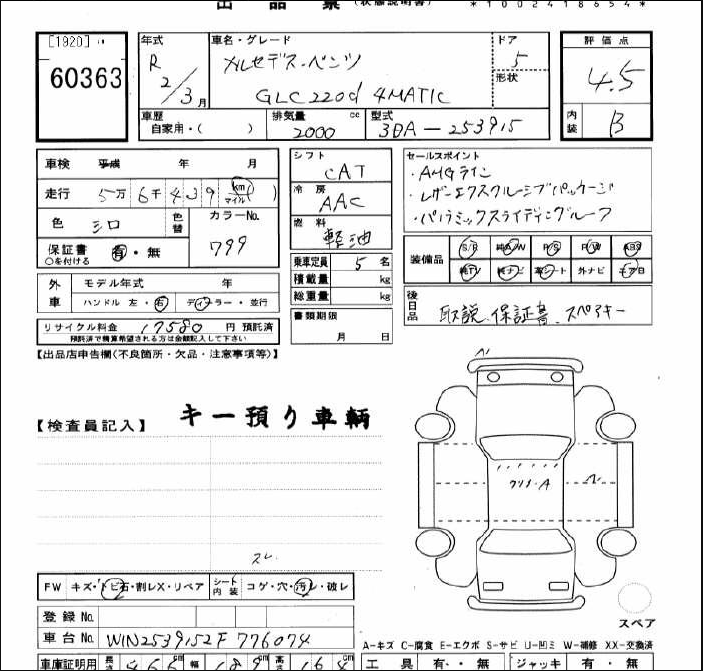 出品票(状態説明書) *1002418654*
[1920]
60363
年式 R 2/3月
車名・グレード メルセデス・ベンツ
GLC220d 4MATIC
ドア 5
形状
評価点 4.5
内装 B
車歴 自家用・( )
排気量 2000 cc
型式 3DA-253915
車検 平成 年 月
走行 5万6千439 (km マイル)
色 シロ 色替
カラーNo. 799
保証書 有・無
○条件付ける
外車 モデル年式 年
ハンドル 左・右 ディーラー・並行
リサイクル料金 17580 円 預託済
預託済で精算希望される方は金額記入して下さい
シフト CAT
冷房 AAC
燃料 軽油
乗車定員 5名
積載量 kg
総重量 kg
書類期限
月 日
セールスポイント
・AMGライン
・レザーエクスクルーシブパッケージ
・パノラミックスライディングルーフ
装備品 S/R 純A/W P/S P/W ABS
純TV 純ナビ 革シート 外ナビ エアB
後日品 取説 保証書 スペアキー
【出品店申告欄(不良箇所・欠品・注意事項等)】
キー預り車輌
【検査員記入】
スレ
FW キズ・トビ石・割レX・リペア シート内装 コゲ・穴・汚レ・破レ
登録No.
車台No. W1N2539152F776074
車庫証明用 長さ 466cm 幅 189cm 高さ 164cm
クリノ・A
スペア
A-キズ C-腐食 E-エクボ S-サビ U-凹ミ W-補修 XX-交換済
工具 有・無 ジャッキ 有・無